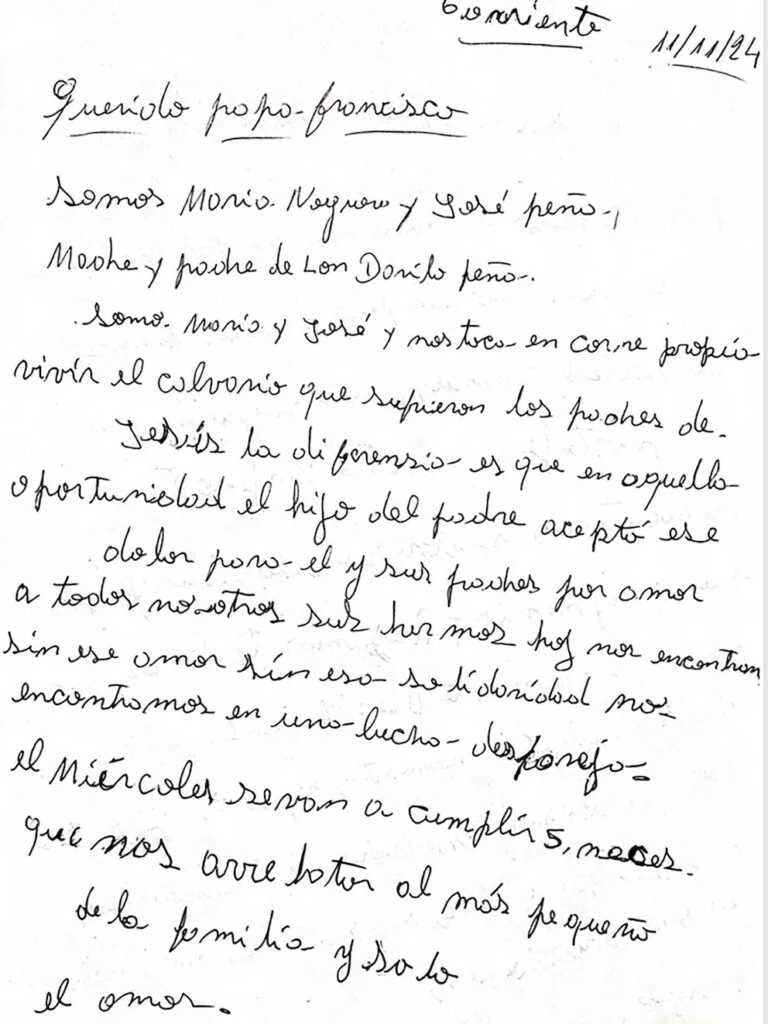 Corriente
11/11/24
Querido papa francisco
Somos Maria Noguera y José peña,
Madre y padre de Loan Danilo peña.
Somo Maria y José y nos toca en carne propia
vivir el calvario que sufrieron los padres de
Jesús la diferensia es que en aquella
oportunidad el hijo del padre aceptó ese
dolor para el y sus padres por amor
a todos nosotros sus hermos hoy nos encontram
sin ese amor sin esa solidaridad nos
encontramos en una lucha despareja
el Miércoles sevan a cumplir 5, meces.
que nos arrebatar al más pequeño
de la familia y solo
el amor.